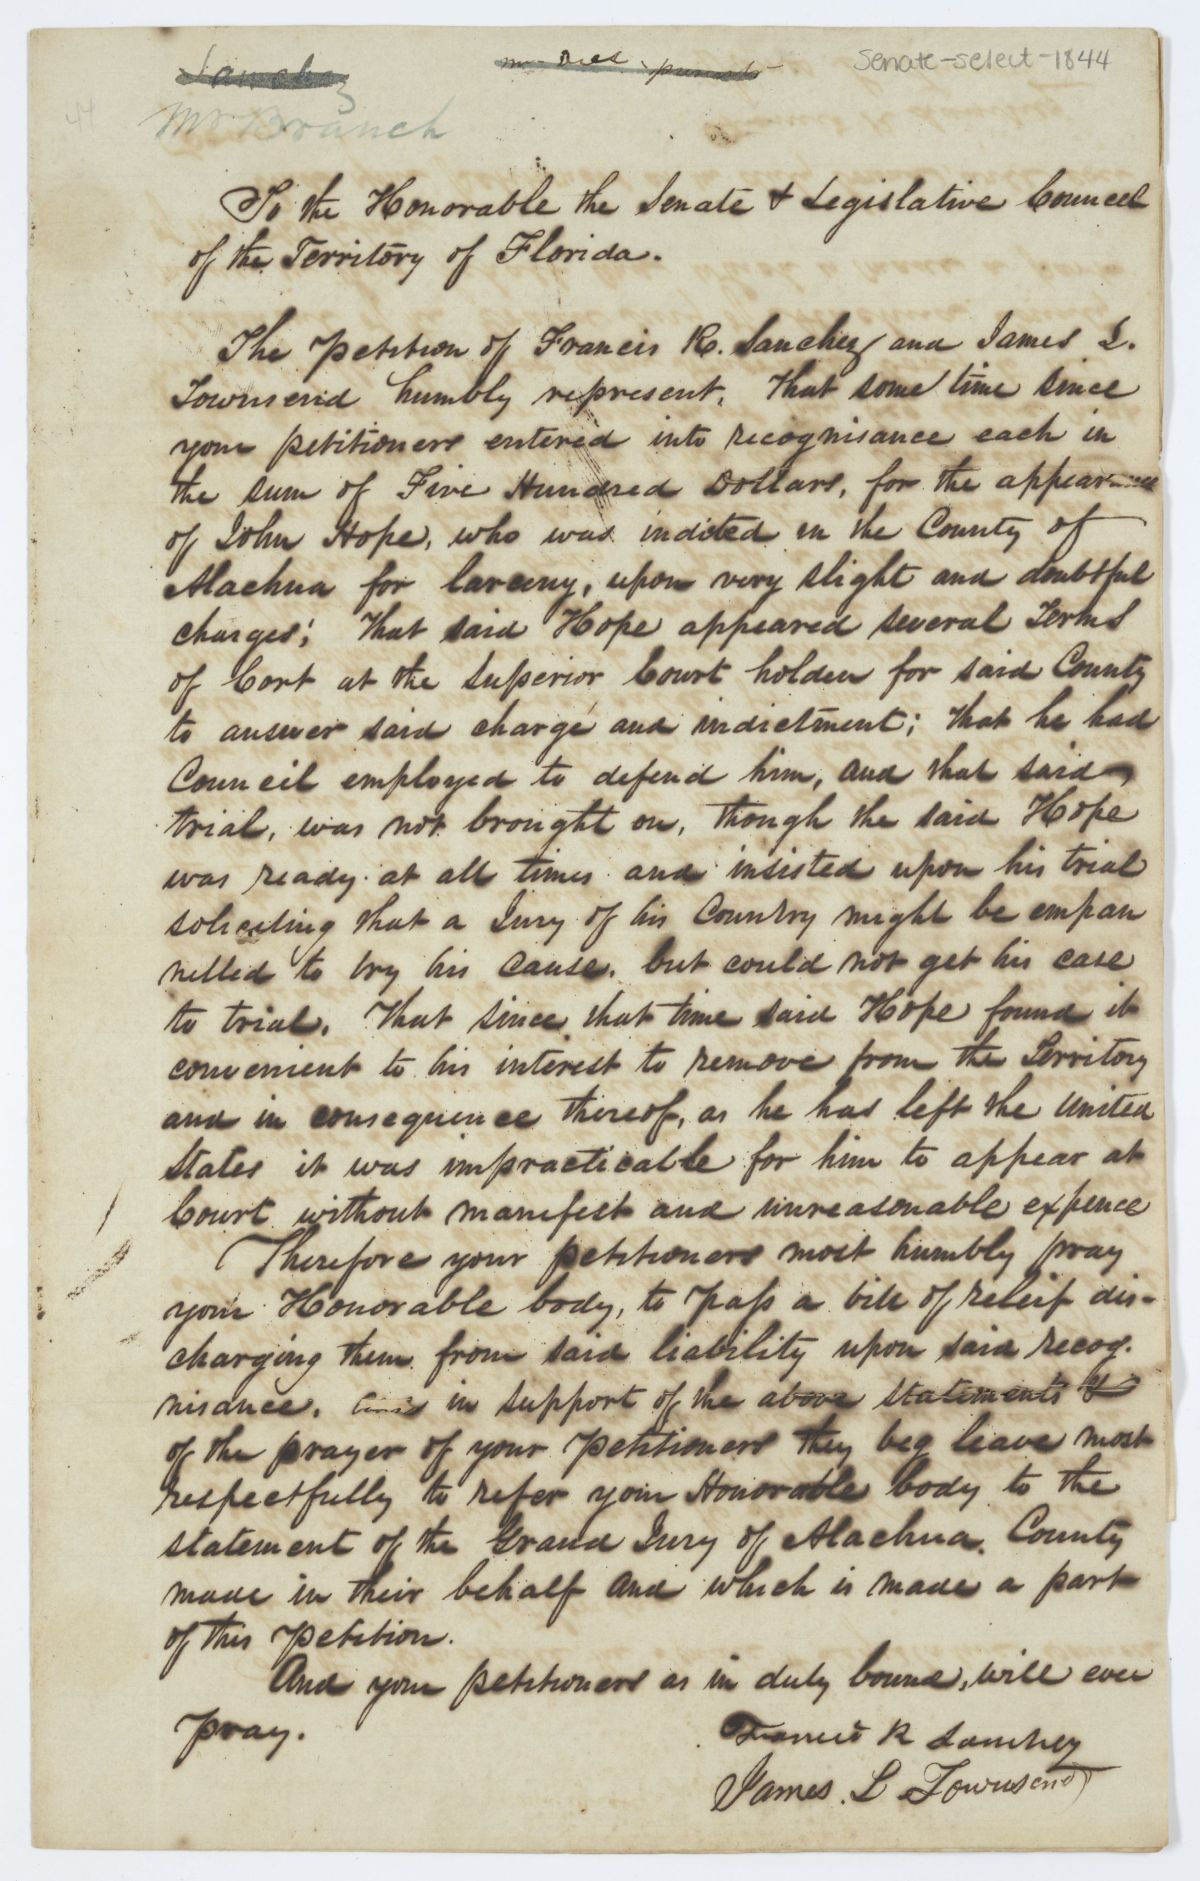 Sanchez
Senate-select-1844
44
Mr Branch
To the Honorable the Senate & Legislative Councel
of the Territory of Florida.
The petition of Francis R. Sanchez and James L.
Townsend humbly represent, that some time since
your petitioners entered into recognisance each in
the sum of Five Hundred Dollars, for the appearance
of John Hope, who was indited in the County of
Alachua for larceny, upon very slight and doubtful
charges; that said Hope appeared several Terms
of Cort at the Superior Court holden for said County
to answer said charge and indictment; that he had
Council employed to defend him, and that said
trial, was not brought on, though the said Hope
was ready at all times and insisted upon his trial
soliciting that a Jury of his Country might be empan
nelled to try his cause, but could not get his case
to trial. That since that time said Hope found it
convenient to his interest to remove from the Territory
and in consequence thereof, as he has left the United
States it was impracticable for him to appear at
Court without manifest and unreasonable expence
Therefore your petitioners most humbly pray
your Honorable body, to pass a bill of releif dis-
charging them from said liability upon said recog-
nisance. and in support of the above statements &
of the prayer of your petitioners they beg leave most
respectfully to refer your Honorable body to the
statement of the Grand Jury of Alachua County
made in their behalf and which is made a part
of this petition.
And your petitioners as in duty bound, will ever
pray.
Francis R Sanchez
James. L Townsend